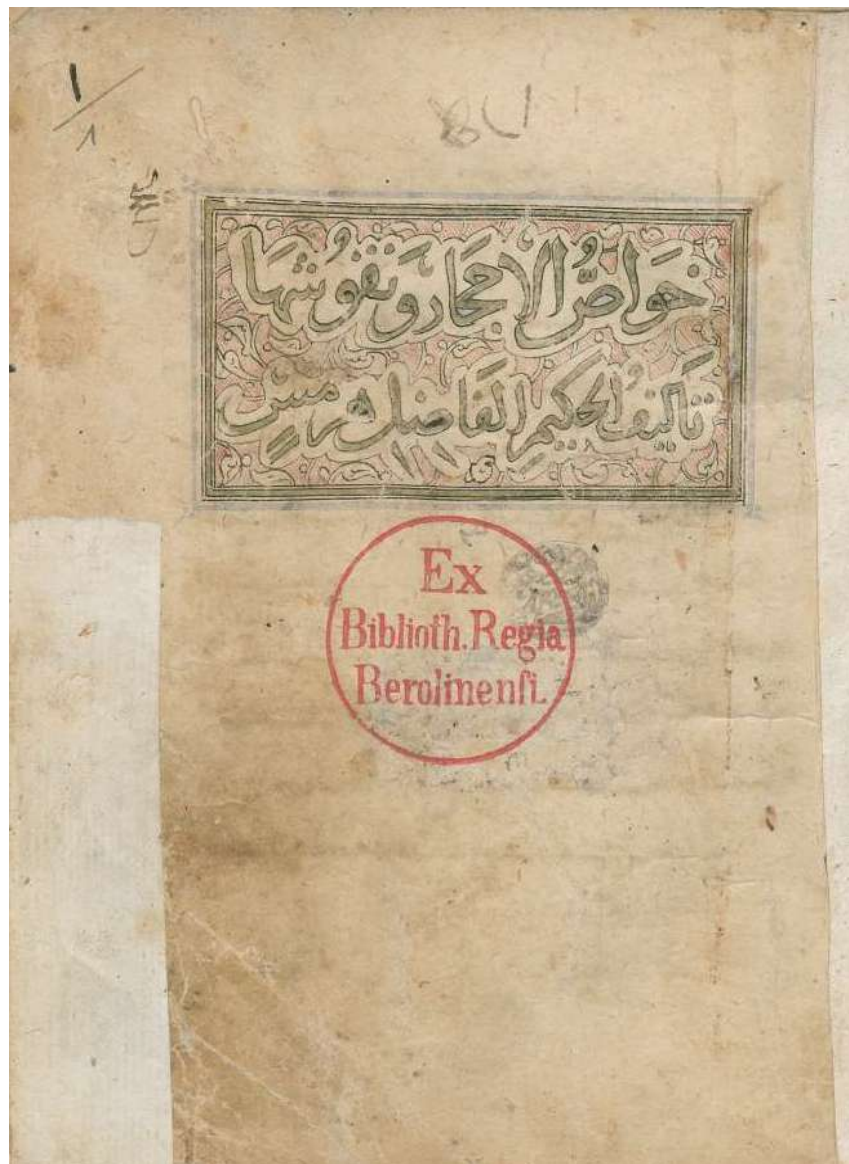 خَوَاصُّ الاحجَار وَنقوُشهَا
تَاليفُ الحَكيمِ الفَاضل هرمسٍ
Ex
Biblioth. Regia
Berolinensi.